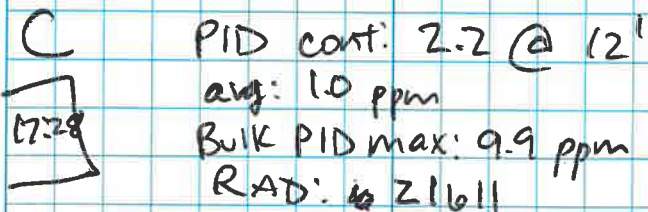 C
17:28
PID cont: 2.2 @ 12'
avg: 1.0 ppm
Bulk PID max: 9.9 ppm
RAD: 21611